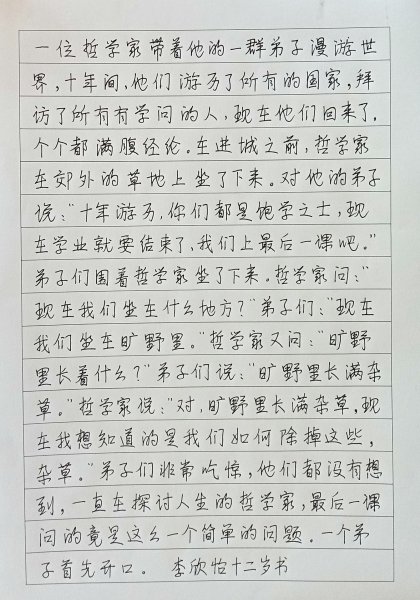 一位哲学家带着他的一群弟子漫游世
界,十年间,他们游历了所有的国家,拜
访了所有有学问的人,现在他们回来了,
个个都满腹经纶。在进城之前,哲学家
在郊外的草地上坐了下来。对他的弟子
说:“十年游历,你们都是饱学之士,现
在学业就要结束了,我们上最后一课吧。”
弟子们围着哲学家坐了下来。哲学家问:“
现在我们坐在什么地方?”弟子们:“现在
我们坐在旷野里。”哲学家又问:“旷野
里长着什么?”弟子们说:“旷野里长满杂
草。”哲学家说:“对,旷野里长满杂草,现
在我想知道的是我们如何除掉这些,
杂草。”弟子们非常吃惊,他们都没有想
到,一直在探讨人生的哲学家,最后一课
问的竟是这么一个简单的问题。一个弟
子首先开口。 李欣怡十二岁书